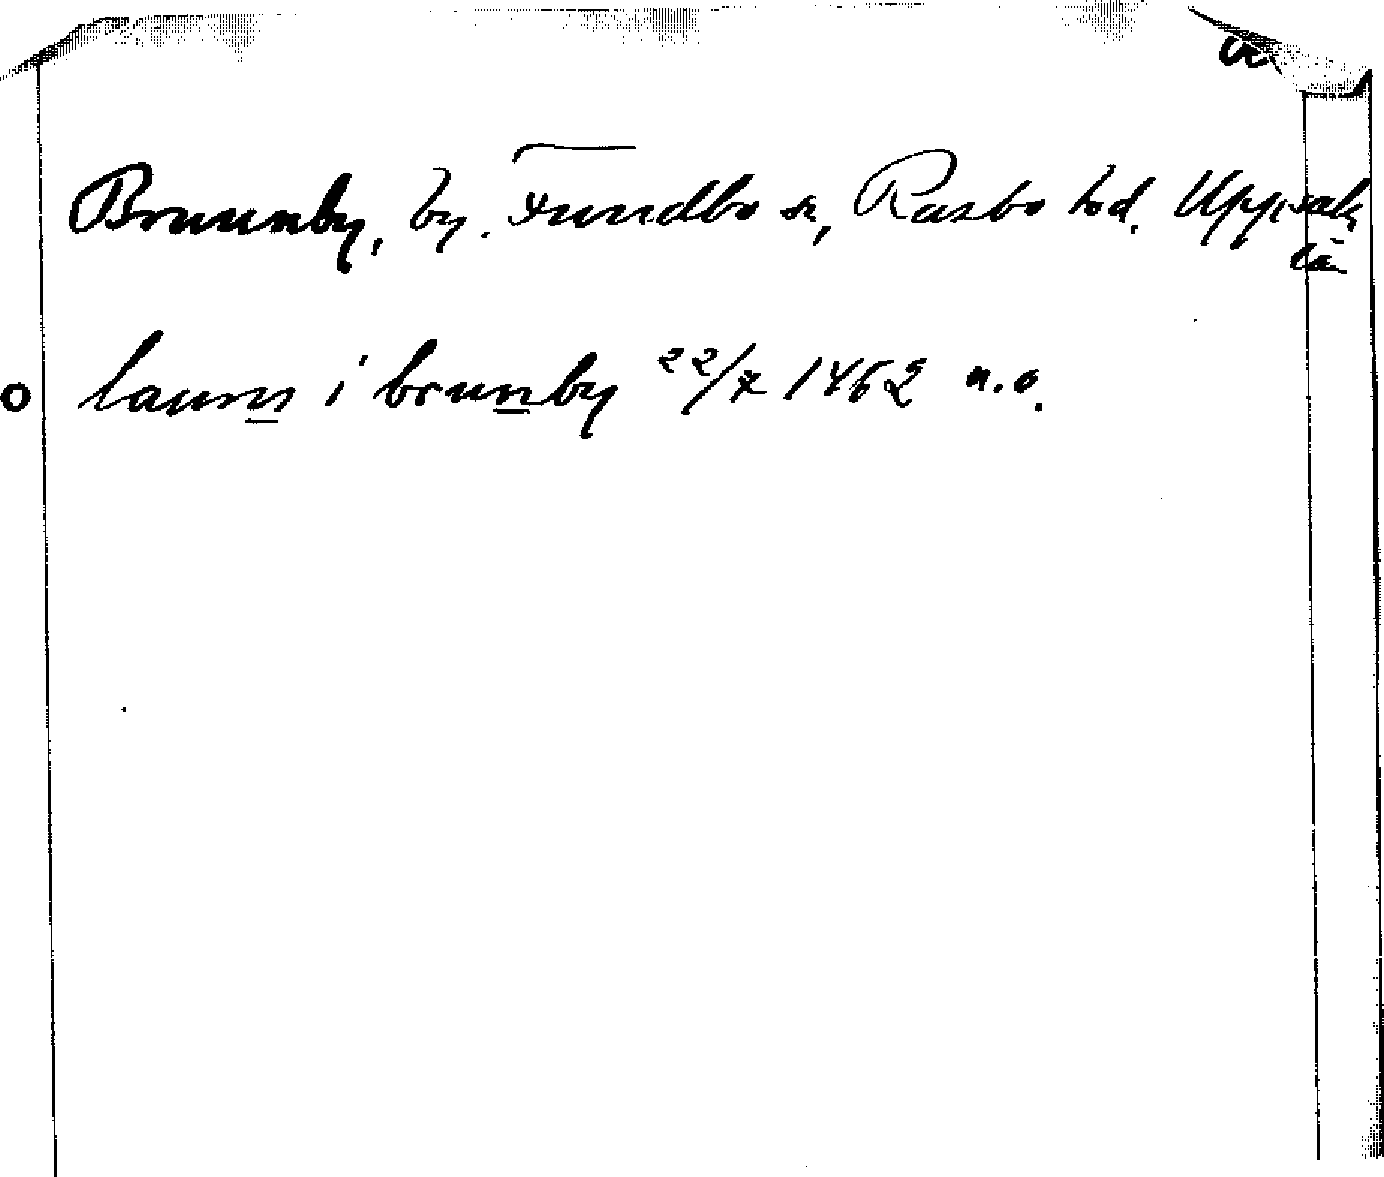 Brunnby, by. Funbo sn, Rasbo hd. Uppsala
län
laurns i brunby 22/7 1462 n.o.